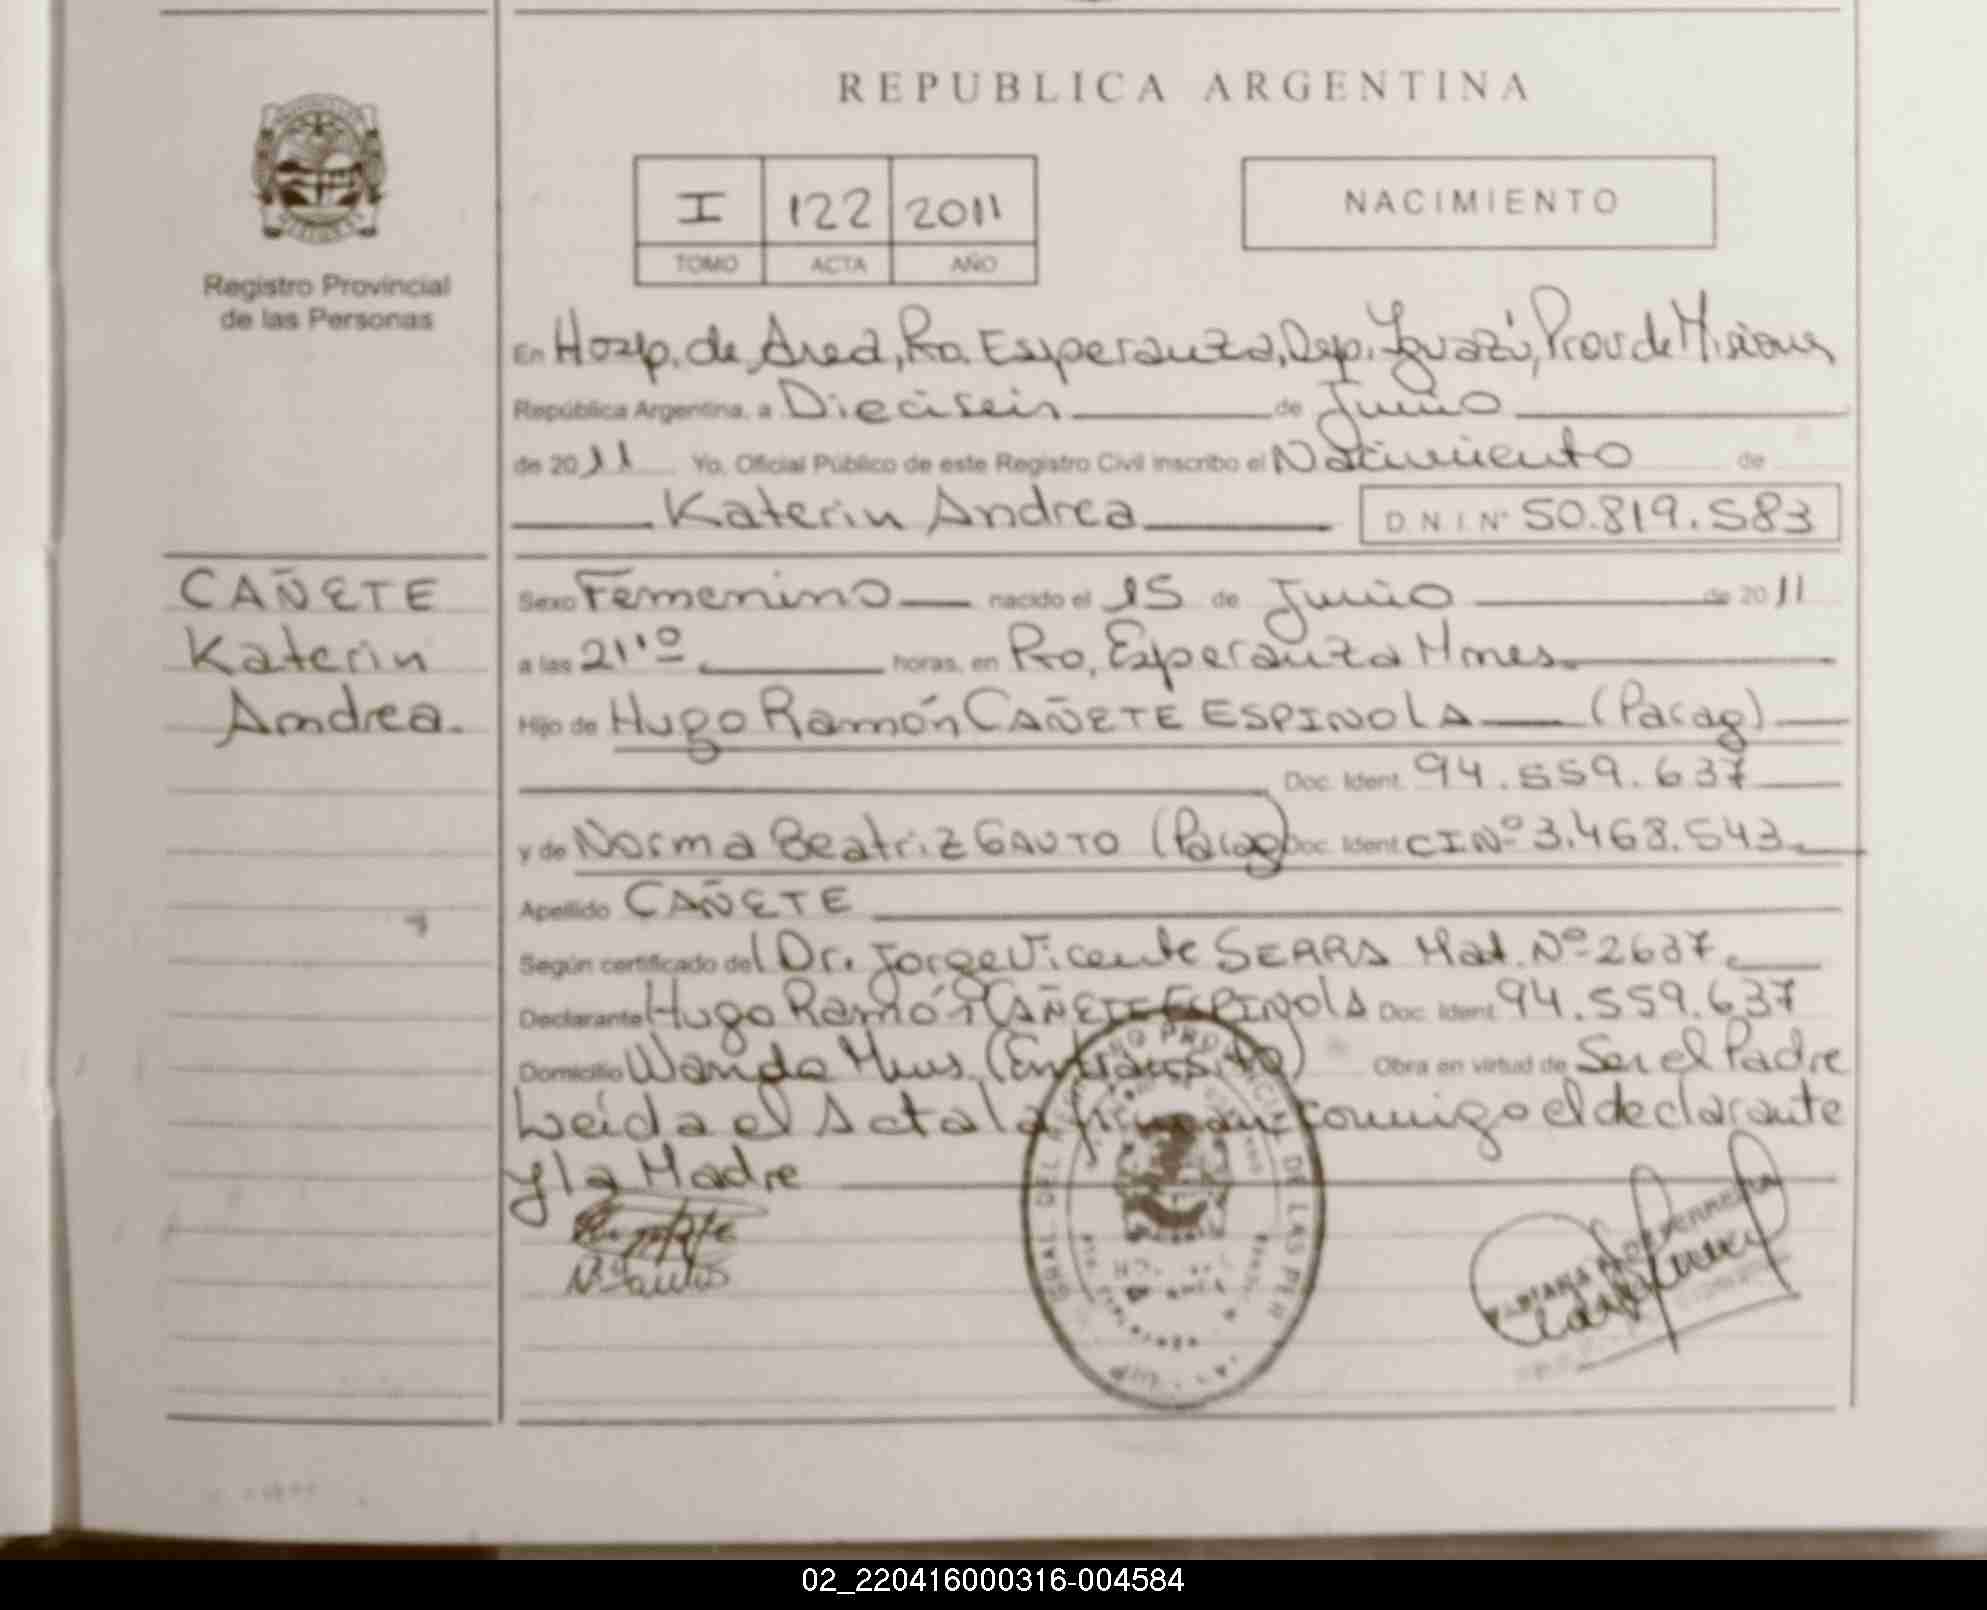 REPUBLICA ARGENTINA
I 122 2011
TOMO ACTA AÑO
NACIMIENTO
Registro Provincial
de las Personas
En Hosp. de Area, Pto. Esperanza, Dep. Iguazú, Prov de Misiones
República Argentina, a Dieciseis de Junio
de 2011 Yo, Oficial Público de este Registro Civil inscribo el Nacimiento de
Katerin Andrea D.N.I.Nº 50.819.583
CAÑETE
Katerin
Andrea.
Sexo Femenino nacido el 15 de Junio de 2011
a las 21'10 horas, en Pto. Esperanza Mnes.
Hijo de Hugo Ramón CAÑETE ESPINOLA (Parag)
Doc. Ident. 94.559.637
y de Norma Beatriz GAUTO (Parag) Doc. Ident. CINº 3.468.543.
Apellido CAÑETE
Según certificado del Dr. Jorge Vicente SEARRA Mat. Nº 2637.
Declarante Hugo Ramón CAÑETE ESPINOLA Doc. Ident. 94.559.637
Domicilio Wanda Mnes. (En transito) Obra en virtud de Ser el Padre
Leída el Acta la firman conmigo el declarante
y la Madre
02_220416000316-004584